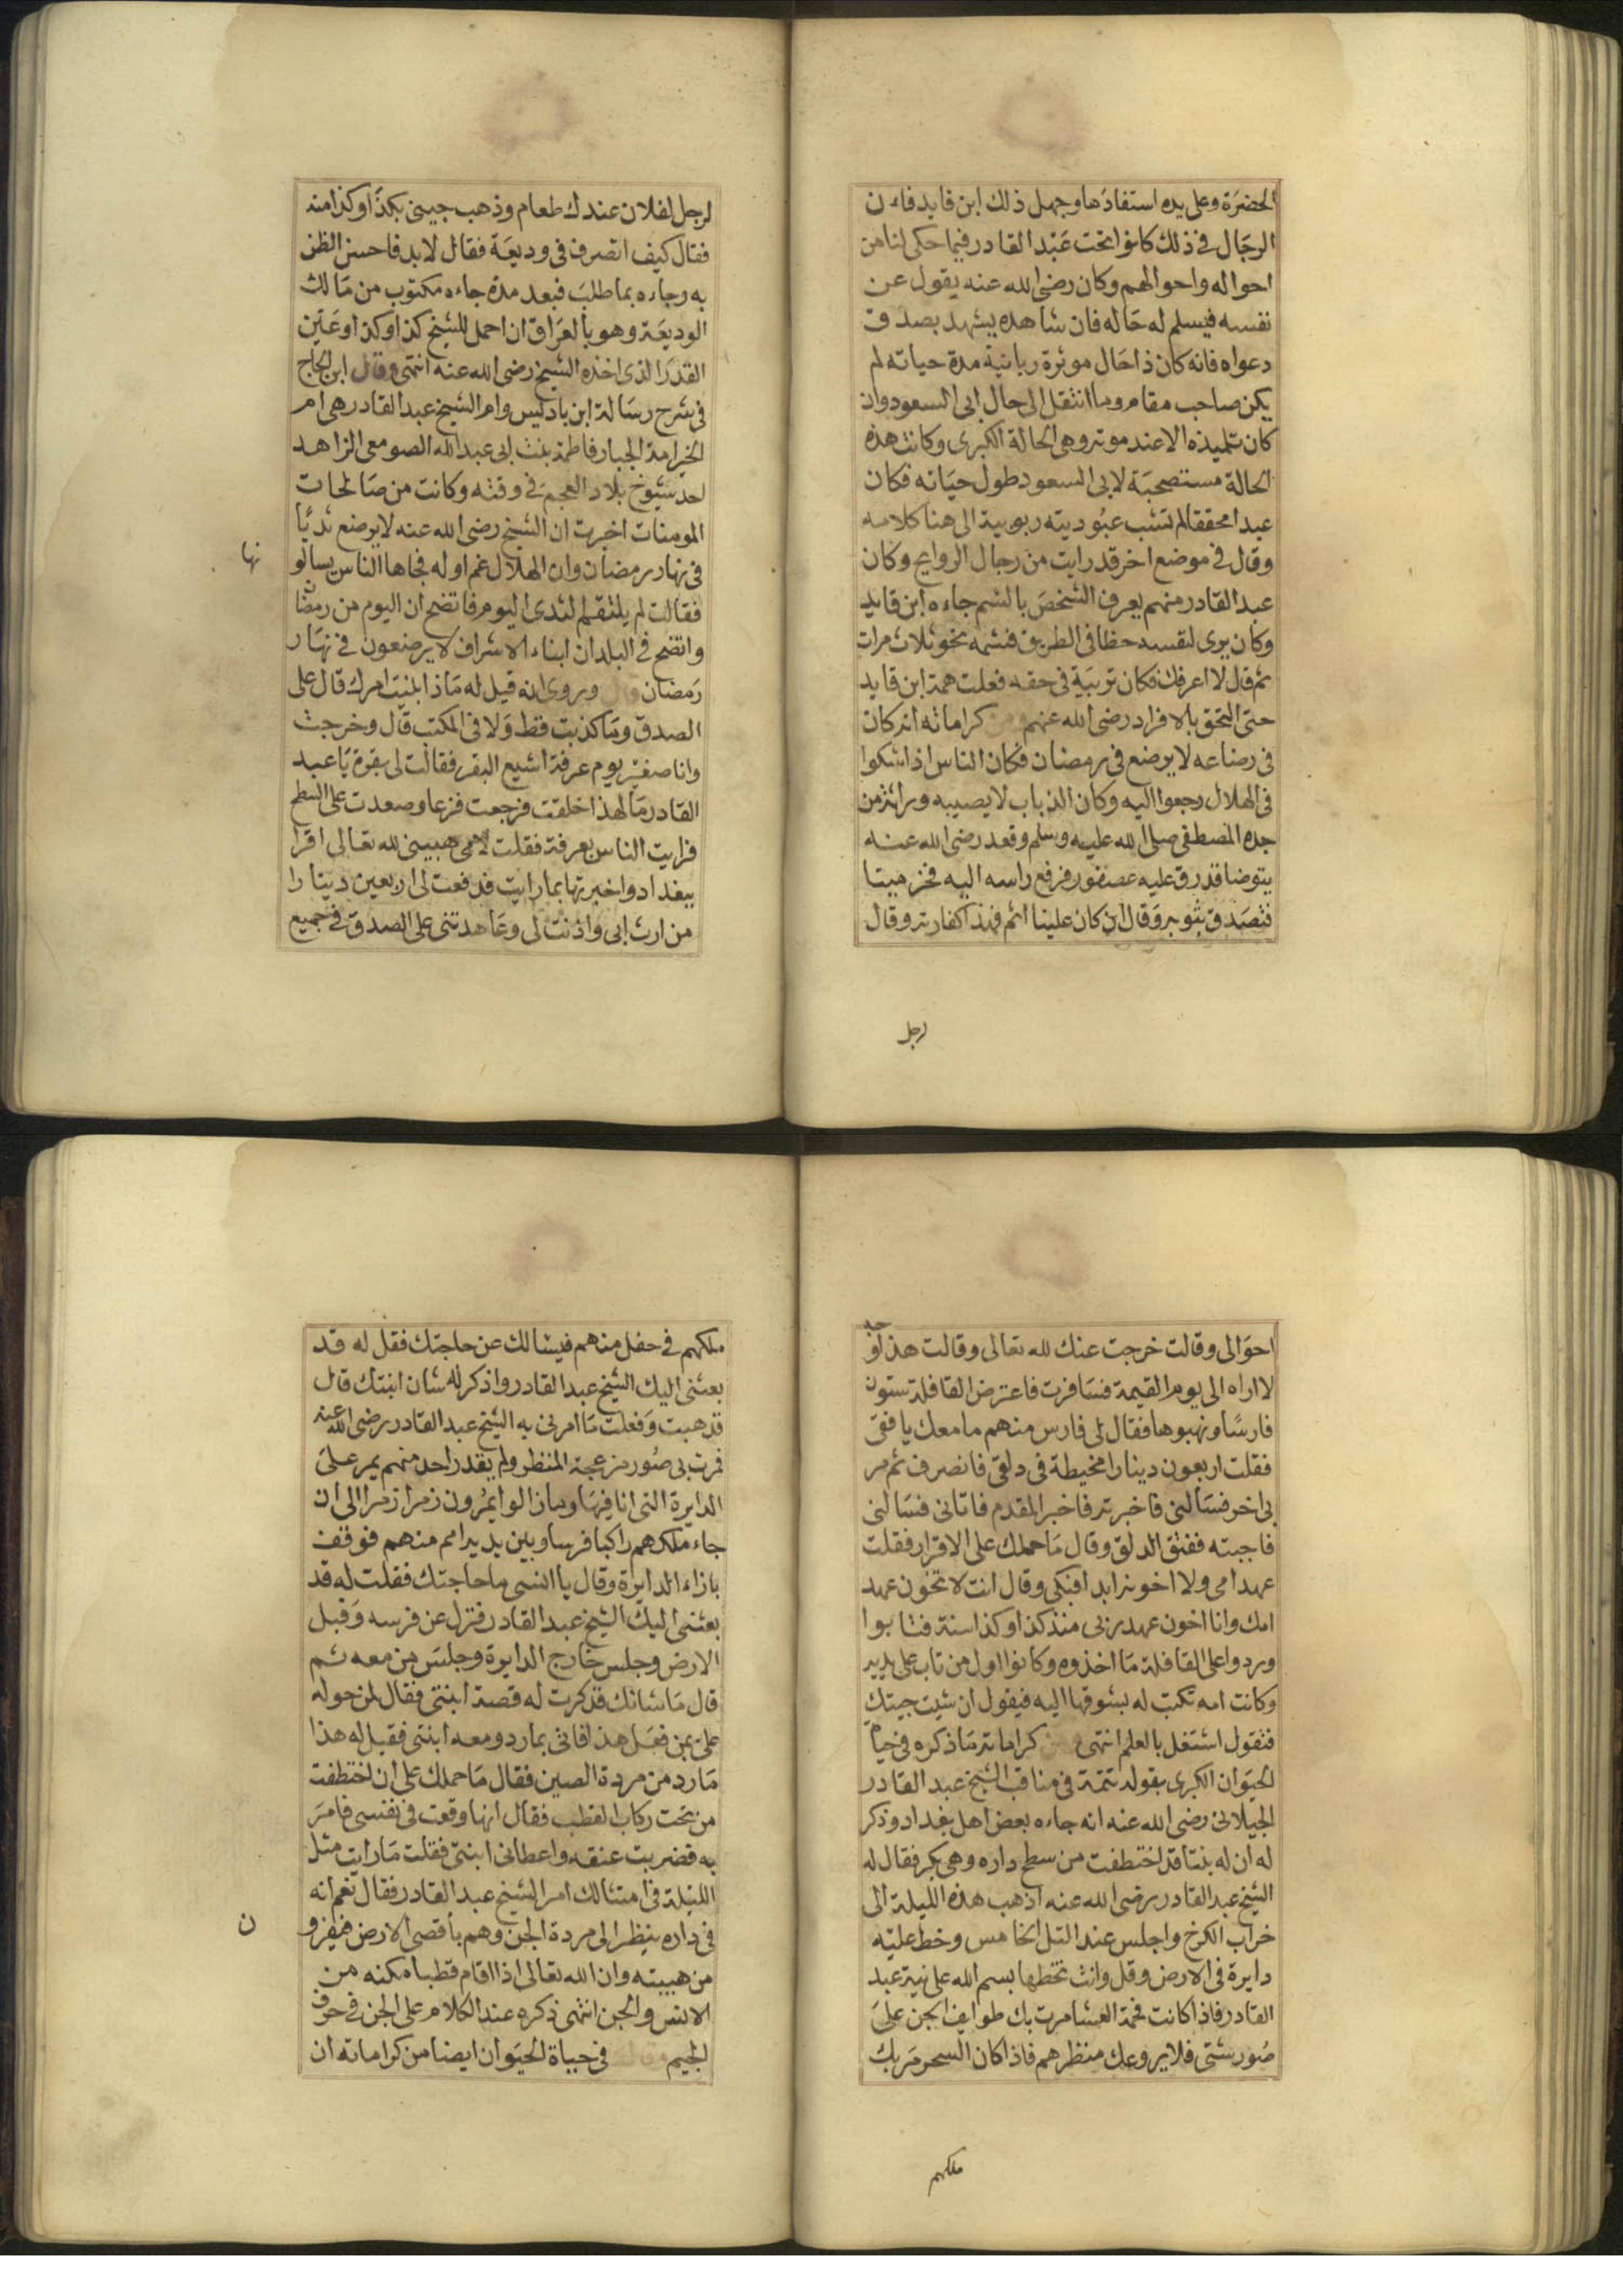 الحضرة وعلى يده استفادها وجهل ذلك ابن قايد فان
الرجال في ذلك كانوا تحت عبد القادر فيما حكى لنا من
احواله واحوالهم وكان رضى الله عنه يقول عن
نفسه فيسلم له حاله فان شاهده يشهد بصدق
دعواه فانه كان ذا حال موثرة ربانية مدة حياته لم
يكن صاحب مقام وما انتقل الى حال ابى السعود وان
كان تلميذه الا عند موته وهى الحالة الكبرى وكانت هذه
الحالة مستصحبة لابى السعود طول حياته فكان
عبدا محققا لم تشب عبوديته ربوبية الى هنا كلامه
وقال في موضع اخر قد رايت من رجال الروايح وكان
عبد القادر منهم يعرف الشخص بالشم جاءه ابن قايد
وكان يرى لنفسه حظا في الطريق فشمه نحو ثلاث مرات
ثم قال لا اعرفك فكان تربية في حقه فعلت همة ابن قايد
حتى التحق بالافراد رضى الله عنهم ومن كراماته انه كان
في رضاعه لا يرضع في رمضان فكان الناس اذا شكوا
في الهلال رجعوا اليه وكان الذباب لا يصيبه وراثة من
جده المصطفى صلى الله عليه وسلم وقعد رضى الله عنه
يتوضا فذرق عليه عصفور فرفع راسه اليه فخر ميتا
فتصدق بثوبه وقال ان كان علينا اثم فهذا كفارته وقال
لرجل
لرجل لفلان عندك طعام وذهب جيئنى بكذا وكذا منه
فقال كيف اتصرف في وديعة فقال لابد فاحسن الظن
به وجاءه بما طلب فبعد مدة جاءه مكتوب من مالك
الوديعة وهو بالعراق ان احمل للشيخ كذا وكذا وعين
القدر الذى اخذه الشيخ رضى الله عنه انتهى وقال ابن الحاج
في شرح رسالة ابن باديس وام الشيخ عبد القادر هى ام
الخير امة الجبار فاطمة بنت ابى عبد الله الصومعى الزاهد
احد شيوخ بلاد العجم في وقته وكانت من صالحات
المومنات اخبرت ان الشيخ رضى الله عنه لا يرضع ثديا
في نهار رمضان وان الهلال غم اوله فجاها الناس يسالو
نها
فقالت لم يلتقم الثدى اليوم فاتضح ان اليوم من رمضا
واتضح في البلد ان ابناء الاشراف لا يرضعون في نهار
رمضان قال وروى انه قيل له ماذا ابنيت امرك قال على
الصدق وما كذبت قط ولا في المكتب قال وخرجت
وانا صغير يوم عرفة اشيع البقر فقالت لى بقرة يا عبد
القادر ما لهذا خلقت فرجعت فزعا وصعدت على السطح
فرايت الناس بعرفة فقلت لامى هبيني لله تعالى اقرا
ببغداد واخبرتها بما رايت فدفعت لى اربعين دينارا
من ارث ابى واذنت لى وعاهدتنى على الصدق في جميع
احوالى وقالت خرجت عنك لله تعالى وقالت هذا وجه
لا اراه الى يوم القيمة فسافرت فاعترض القافلة ستون
فارسا ونهبوها فقال لى فارس منهم ما معك يا فقى
فقلت اربعون دينارا مخيطة في دلقى فانصرف ثم مر
بى اخر فسالنى فاخبرته فاخبر المقدم فاتانى فسالنى
فاجبته ففتق الدلق وقال ما حملك على الاقرار فقلت
عهد امى ولا اخونه ابدا فبكى وقال انت لا تخون عهد
امك وانا اخون عهد ربى منذ كذا وكذا سنة فتابوا
وردوا على القافلة ما اخذوه وكانوا اول من تاب على يديه
وكانت امه تكتب له بشوقها اليه فيقول ان شيت جيتك
فتقول اشتغل بالعلم انتهى ومن كراماته ما ذكره في حياة
الحيوان الكبرى بقوله تتمة في مناقب الشيخ عبد القادر
الجيلانى رضى الله عنه انه جاءه بعض اهل بغداد وذكر
له ان له بنتا قد اختطفت من سطح داره وهى بكر فقال له
الشيخ عبد القادر رضى الله عنه اذهب هذه الليلة الى
خراب الكرخ واجلس عند التل الخامس وخط عليه
دايرة في الارض وقل وانت تخطها بسم الله على نية عبد
القادر فاذا كانت فحمة العشا مرت بك طوايف الجن على
صور شتى فلا يروعك منظرهم فاذا كان السحر مر بك
ملكهم
ملكهم في حفل منهم فيسالك عن حاجتك فقل له قد
بعثنى اليك الشيخ عبد القادر واذكر له شان ابنتك قال
فذهبت وفعلت ما امرنى به الشيخ عبد القادر رضى الله عنه
فمرت بى صور مزعجة المنظر ولم يقدر احد منهم يمر على
الدايرة التى انا فيها وما زالوا يمرون زمرا زمرا الى ان
جاء ملكهم راكبا فرسا وبين يديه امم منهم فوقف
بازاء الدايرة وقال يا انسى ما حاجتك فقلت له قد
بعثنى اليك الشيخ عبد القادر فنزل عن فرسه وقبل
الارض وجلس خارج الدايرة وجلس من معه ثم
قال ما شانك فذكرت له قصة ابنتى فقال لمن حوله
على بمن فعل هذا فاتى بمارد ومعه ابنتى فقيل له هذا
مارد من مردة الصين فقال ما حملك على ان اختطفت
من تحت ركاب القطب فقال انها وقعت في نفسى فامر
به فضربت عنقه واعطانى ابنتى فقلت ما رايت مثل
الليلة في امتثالك امر الشيخ عبد القادر فقال نعم انه
في داره ينظر الى مردة الجن وهم باقصى الارض فيفرو
ن
من هيبته وان الله تعالى اذا اقام قطبا مكنه من
الانس والجن انتهى ذكره عند الكلام على الجن في حرف
الجيم وقال في حياة الحيوان ايضا من كراماته ان